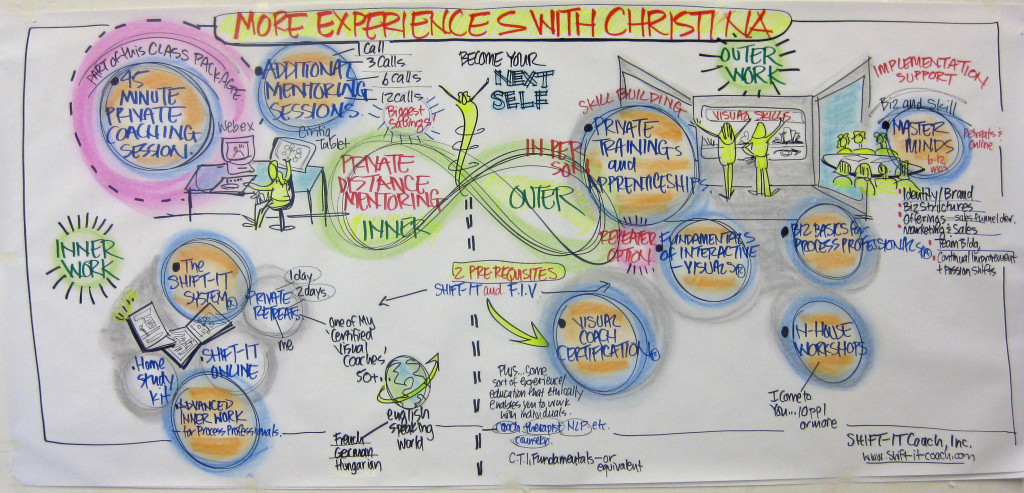 MORE EXPERIENCES WITH CHRISTINA
PART of this CLASS PACKAGE
45
MINUTE
PRIVATE
COACHING
SESSION.
ADDITIONAL
MENTORING
SESSIONS.
1 Call
3 Calls
6 calls
12 calls
Biggest
Savings!
Webex
Cintiq
Tablet
BECOME YOUR
NEXT
SELF
PRIVATE
DISTANCE
MENTORING
INNER
IN PER
SON
OUTER
OUTER
WORK
SKILL BUILDING
PRIVATE
TRAININGS
and
APPRENTICESHIPS
VISUAL SKILLS
IMPLEMENTATION
SUPPORT
Biz and Skill
MASTER
MINDS
6-12
Retreats &
Online
Identity/Brand
Biz Structures
Offerings - sales funnel dev.
Marketing & Sales
Team Bldg,
Continual Improvement
+ Passion Shifts
REPEATER
OPTION!
FUNDAMENTALS
OF INTERACTIVE
VISUALS®
BIZ BASICS for
PROCESS PROFESSIONALS®
INNER
WORK
The
SHIFT-IT
SYSTEM®
PRIVATE
RETREATS
1 day
2 days
me
one of My
'Certified
Visual
Coaches'
50+...
Home
Study
KIT
SHIFT-IT
ONLINE
ADVANCED
INNER WORK
for Process Professionals.
2 PREREQUISITES
SHIFT-IT and F.I.V
VISUAL
COACH
CERTIFICATION®
Plus... Some
sort of experience/
education that ethically
enables you to work
with individuals.
Coach therapist NLP etc.
counselor
CTI. Fundamentals - or
equivalent
english
speaking
world
French
German
Hungarian
IN-HOUSE
WORKSHOPS
I Come to
You... 10 ppl
or more
SHIFT-IT Coach, Inc.
www.shift-it-coach.com